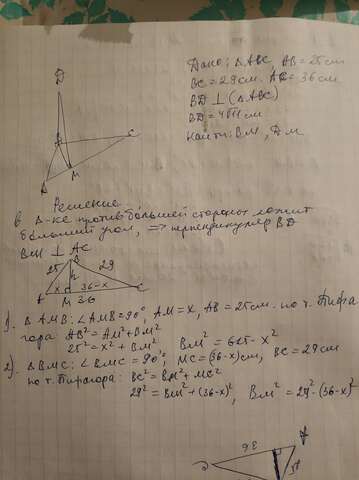 Дано: ΔABC, AB = 25 см
BC = 29 см. AC = 36 см
BD ⊥ (ΔABC)
BD = 4√11 см
Найти: BM, DM
D
B
C
M
A
Решение
В Δ-ке против большей стороны лежит
больший угол, => перпендикуляр BD
BM ⊥ AC
B
25
29
h
x
36-x
A
M
C
36
1). ΔAMB: ∠AMB = 90°, AM = x, AB = 25 см. по т. Пифа
гора AB² = AM² + BM²
25² = x² + BM² BM² = 625 - x²
2). ΔBMC: ∠BMC = 90°, MC = (36-x) см, BC = 29 см
по т. Пифагора: BC² = BM² + MC²
29² = BM² + (36-x)², BM² = 29² - (36-x)²
36
A